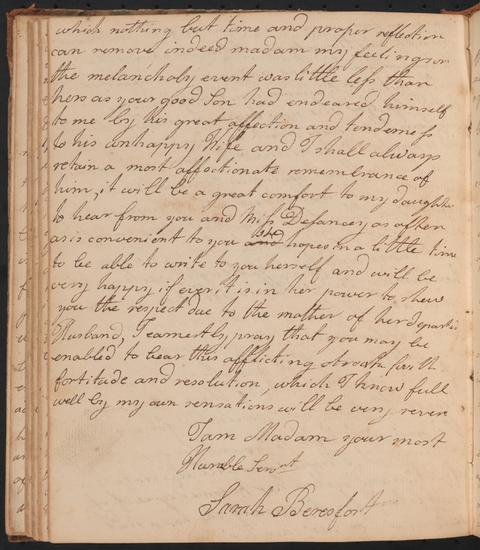 which nothing but time and proper reflection
can remove indeed madam my feelings on
the melancholy event was little less than
hers as your good Son had endeared himself
to me by his great affection and tenderness
to his unhappy Wife and I shall always
retain a most affectionate remembrance of
him, it will be a great comfort to my daughter
to hear from you and Miss Defancey as often
as is convenient to you and she hopes in a little time
to be able to write to you herself and will be
very happy if ever it is in her power to shew
you the respect due to the mother of her departed
Husband, I earnestly pray that you may be
enabled to bear this afflicting stroak with
fortitude and resolution, which I know full
well by my own sensations will be very severe
I am Madam your most
Humble Servt
Sarah Beresfort